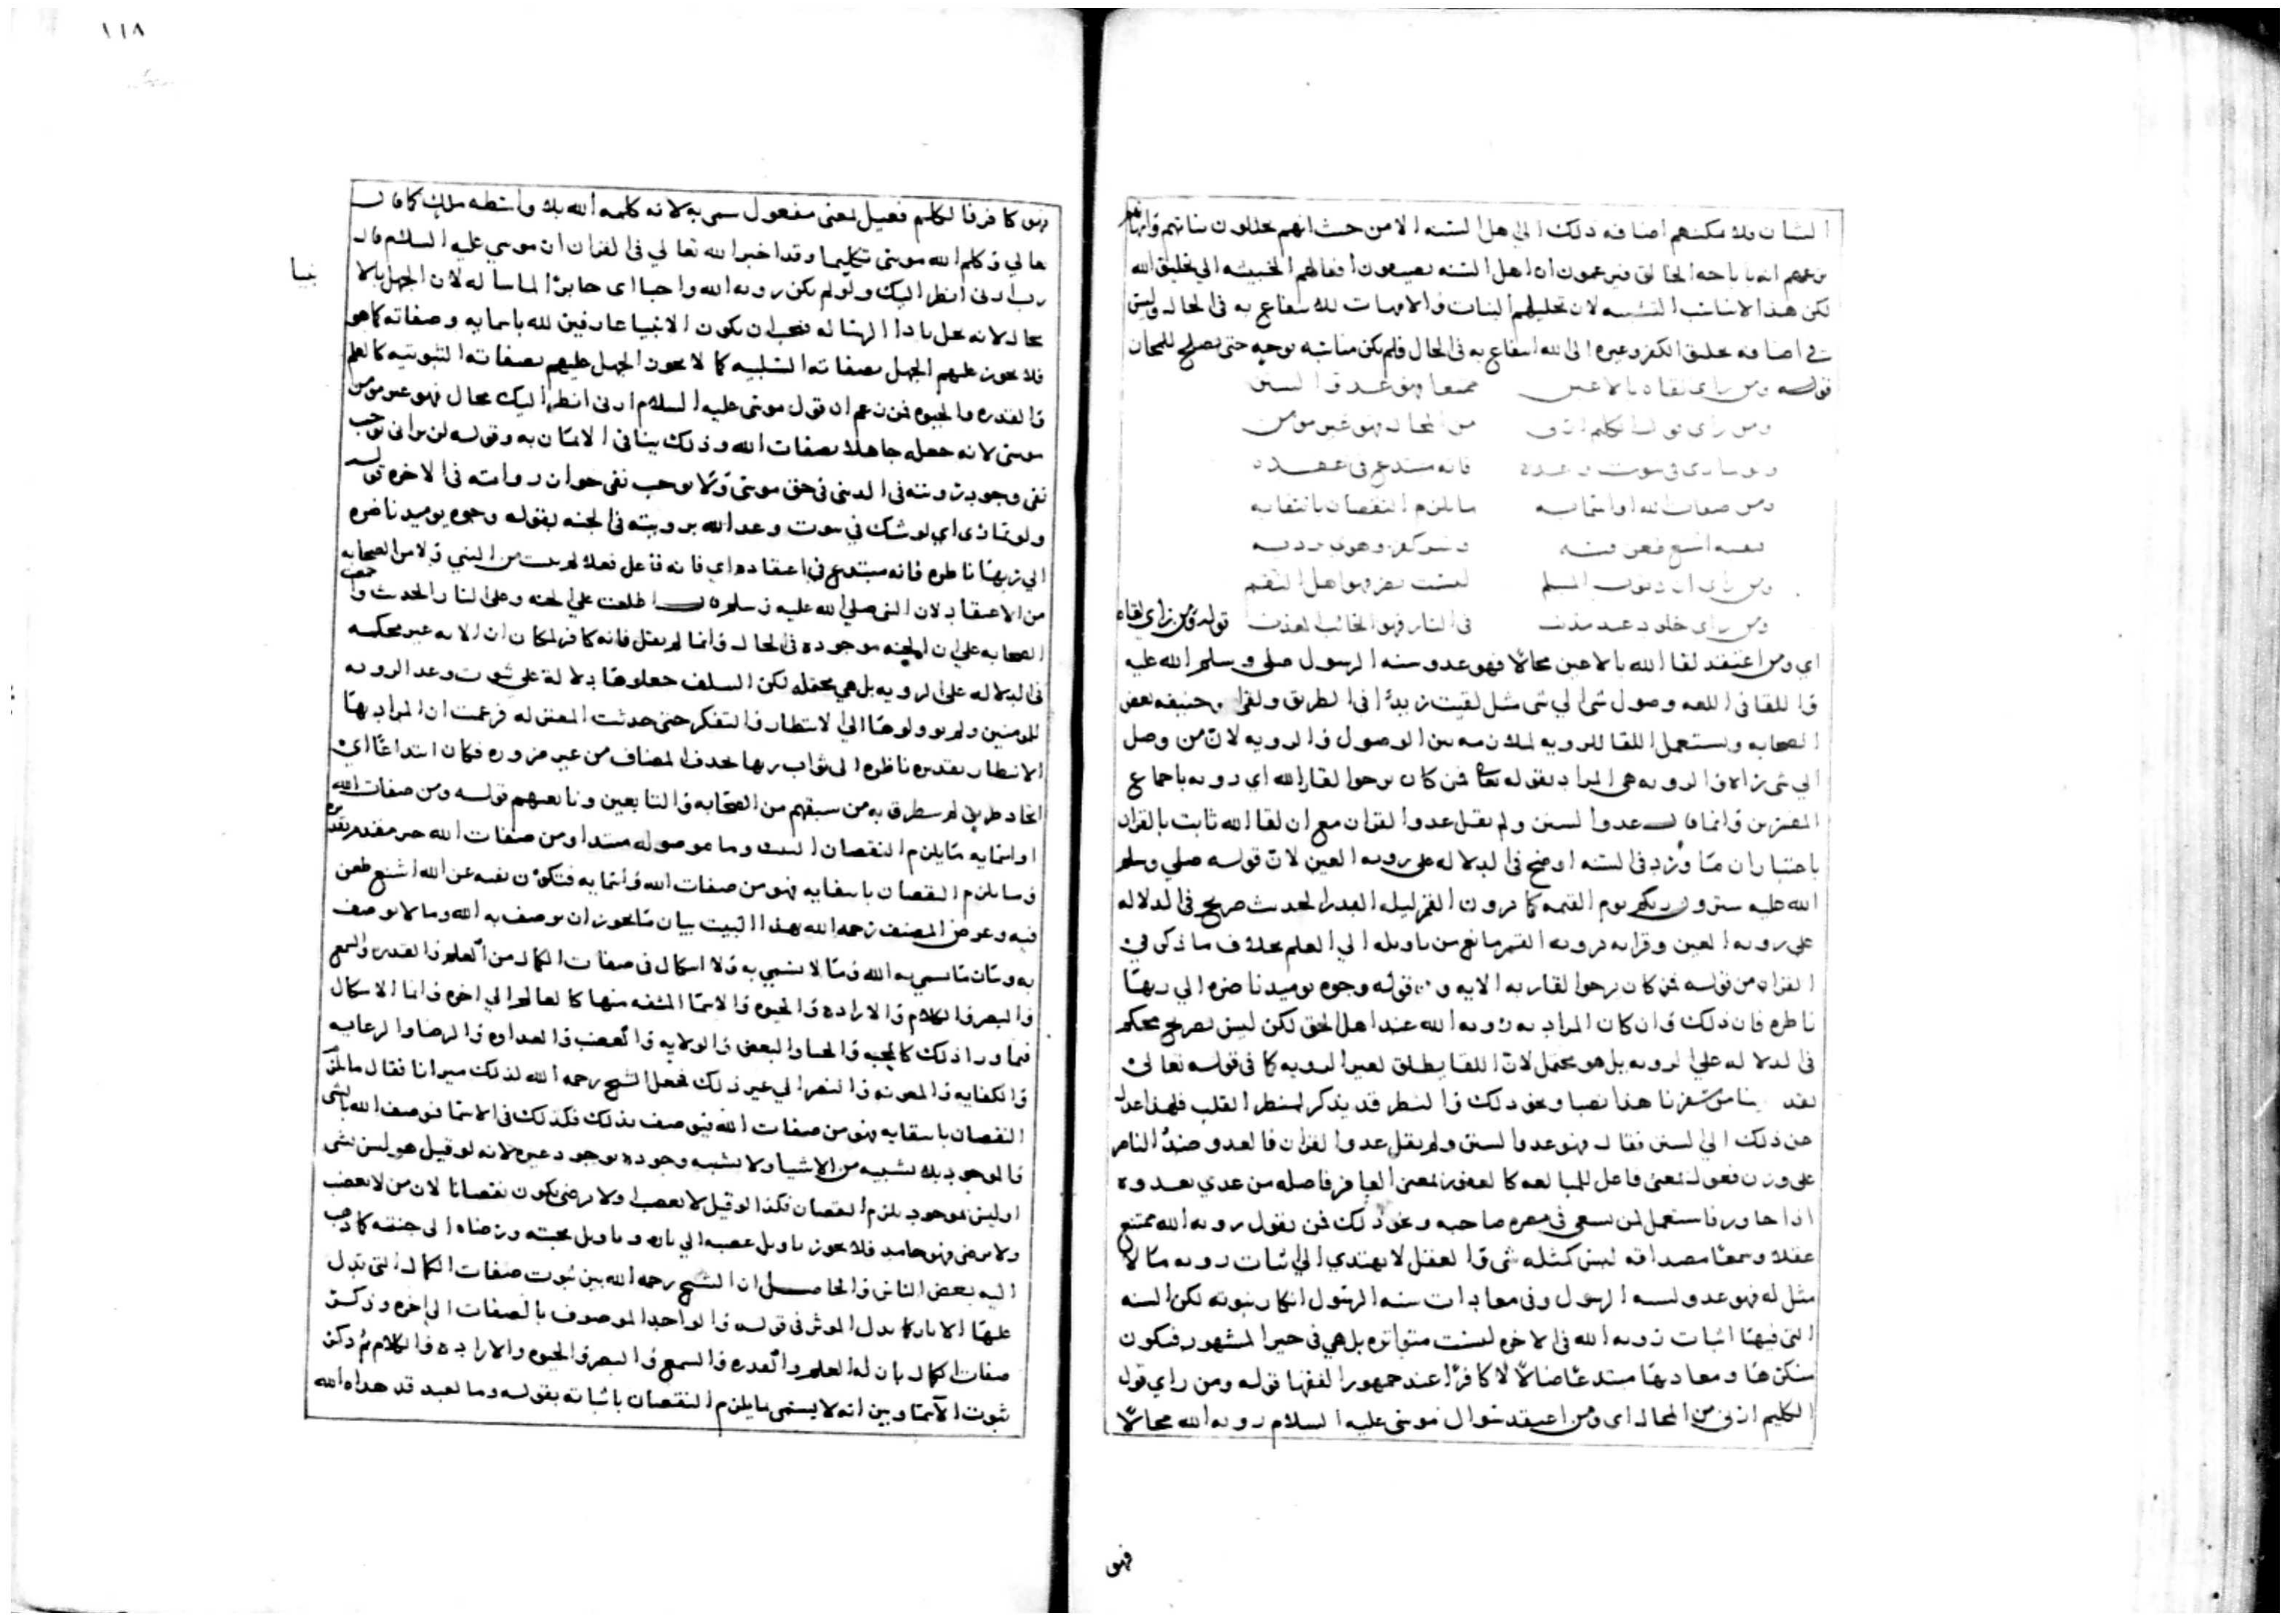 النسان فلا يمكنهم اضافة ذلك الي اهل السنه الا من حيث انهم يحللون بناتهم وامهاتهم
زعمهم انه باباحه الخالق فيزعمون ان اهل السنه يضيفون افعالهم الخبيثه الي تخليق الله
لكن هذا لا يناسب التشبيه لان تحليلهم البنات والامهات للانتفاع به في الحال وليس
في اضافه تخليق الكفر وغيره الى الله انتفاع به في الحال فلم يكن مناسبه بوجه حتى يصلح للمجاز
قوله ومن راى لقاه بالاعين ممتنعا فهو عدو السنن
ومن راى قول الكليم ارني من المحال فهو غير مومن
ولو تمادى في ثبوت وعده فانه مبتدع في عقده
ومن صفات الله او اسمايه ما يلزم النقصان بانتفايه
فنفيه اشنع طعن فيه
ومن راى ان ذنوب المسلم ليست تضر فهو اهل النقم
ومن راى خلود عبد مذنب في النار فهو الخائب المعذب قوله ومن راي لقاه
اي ومن اعتقد لقا الله بالاعين محالا فهو عدو سنه الرسول صلى وسلم الله عليه
واللقا في اللغه وصول شي الي شي مثل لقيت زيدا في الطريق ولقي ابو حنيفه بعض
الصحابه ويستعمل اللقا للرويه لملازمه بين الوصول والرويه لان من وصل
الي شي راه والرويه هي المراد بقوله تعا فمن كان يرجوا لقا الله اي رويه باجماع
المفسرين وانما قال عدوا لسنن ولم يقل عدوا القران مع ان لقا الله ثابت بالقران
باعتبار ان ما ورد في السنه اوضح في الدلاله على رويه العين لان قوله صلي وسلم
الله عليه سترون ربكم يوم القيمه كما ترون القمر ليله البدر الحديث صريح في الدلاله
على رويه العين وقرانه برويه القمر مانع من تاويله الي العلم بخلاف ما ذكر في
القران من قوله فمن كان يرجوا لقا ربه الايه و قوله وجوه يوميذ ناضره الي ربها
ناظره فان ذلك وان كان المراد به رويه الله عند اهل الحق لكن ليس بصريح محكم
في الدلاله علي الرويه بل هو محتمل لان اللقا يطلق لغير الرويه كما في قوله تعالى
لقد لقينا من سفرنا هذا نصبا ونحو ذلك والنظر قد يذكر لمنظر القلب فلهذا عدل
عن ذلك الي السنن فقال فهو عدو السنن ولم يقل عدو القران فالعدو ضد الناصر
على وزن فعول بمعنى فاعل للمبالغه كالغفور بمعنى الغافر فاصله من عدي يعدوه
اذا جاوز فاستعمل لمن يسعى في مضره صاحبه ونحو ذلك فمن يقول رويه الله ممتنع
عقلا وسمعا مصداقه ليس كمثله شي والعقل لا يهتدي الي اثبات رويه ما لا
مثل له فهو عدو لسنه الرسول وفي معادات سنه الرسول انكار نبوته لكن السنه
التي فيها اثبات رويه الله في الاخره ليست متواتره بل هي في حيز المشهور فيكون
منكرها ومعاديها مبتدعا ضالا لا كافرا عند جمهور الفقها قوله ومن راي قول
الكليم ارني من المحال اي ومن اعتقد سوال موسى عليه السلام رويه الله محالا
فهو
١١٨
فهو كافر فالكليم فعيل بمعنى مفعول سمي به لانه كلمه الله بلا واسطه ملك كما قال
تعالي وكلم الله موسى تكليما وقد اخبر الله تعالي في القران ان موسى عليه السلام قال
رب ارني انظر اليك ولو لم يكن رويه الله واجبا اي جايزا لما ساله لان الجهل بالا
نبيا
محال لانه يخل باداء الرساله فيجب ان يكون الانبيا عارفين لله باسمايه وصفاته كما هو
فلا يجوز عليهم الجهل بصفاته السلبيه كما لا يجوز الجهل عليهم بصفاته الثبوتيه كالعلم
والقدره والحيوه فمن زعم ان قول موسى عليه السلام ارني انظر اليك محال فهو غير مومن
بموسى لانه جعله جاهلا بصفات الله وذلك ينافي الايمان به وقوله لن تراني يوجب
نفي وجود رويته في الدنيا في حق موسى ولا يوجب نفي جواز رويته في الاخره قوله
ولو تمادى اي لو شك في ثبوت وعد الله برويته في الجنه بقوله وجوه يوميذ ناضره
الي ربها ناظره فانه مبتدع في اعتقاده اي فانه فاعل فعلا لم يثبت من النبي ولا من الصحابه
من الاعتقاد لان النبي صلي الله عليه وسلم قال اطلعت علي الجنه وعلى النار الحديث واجمعت
الصحابه علي ان الجنه موجوده في الحال وانما لم يقل فانه كافر لمكان ان الايه غير محكمه
في الدلاله على الرويه بل هي محتمله لكن السلف جعلوها دلالة على ثبوت وعد الرويه
للمومنين ولم يوولوها الي الانتظار والتفكر حتى حدثت المعتزله فزعمت ان المراد بها
الانتظار بتقدير ناظره الى ثواب ربها بحذف المضاف من غير ضروره فكان ابتداعا اي
اتخاذ طريق لم يتطرق به من سبقهم من الصحابه والتابعين وتابعيهم قوله ومن صفات الله
او اسمايه ما يلزم النقصان البيت وما موصوله مبتدا ومن صفات الله خبر مقدم تقديره
وما يلزم النقصان بانتفايه فهو من صفات الله واسمايه فتكون نفيه عن الله اشنع طعن
فيه وغرض المصنف رحمه الله بهذا البيت بيان ما يجوز ان يوصف به الله وما لا يوصف
به وبيان ما يسمي به الله وما لا يسمي به ولا اشكال في صفات الكمال من العلم والقدره والسمع
والبصر والكلام والارادة والحيوه والاسما المشتقه منها كالعالم الي اخره وانما الاشكال
فيما ورا ذلك كالمحبه والحيا والبغض والولايه والغضب والعداوه والرضا والرعايه
والكفايه والمعونه والنصر الي غير ذلك فجعل الشيخ رحمه الله لذلك ميزانا فقال ما يلزم
النقصان بانتفايه فهو من صفات الله فيوصف بذلك فكذلك في الاسما فوصف الله بالشي
والموجود بلا تشبيه من الاشيا ولا تشبيه وجوده بوجود غيره لانه لو قيل هو ليس بشي
او ليس بموجود يلزم النقصان فكذا لو قيل لا يغضب ولا يرضى يكون نقصانا لان من لا يغضب
ولا يرضى فهو جامد فلا يجوز تاويل غضبه الي ناره وتاويل محبته ورضاه الى جنته كما ذهب
اليه بعض الناس والحاصل ان الشيخ رحمه الله بين ثبوت صفات الكمال التي تدل
عليها الاثار كما يدل الموثر في قوله والواحد الموصوف بالصفات الى اخره وذكر
صفات الكمال بان له العلم والقدره والسمع والبصر والحيوه والاراده والكلام ثم ذكر
ثبوت الاسما وبين انه لا يسمى ما يلزم النقصان باثباته بقوله وما لعبد قد هداه الله